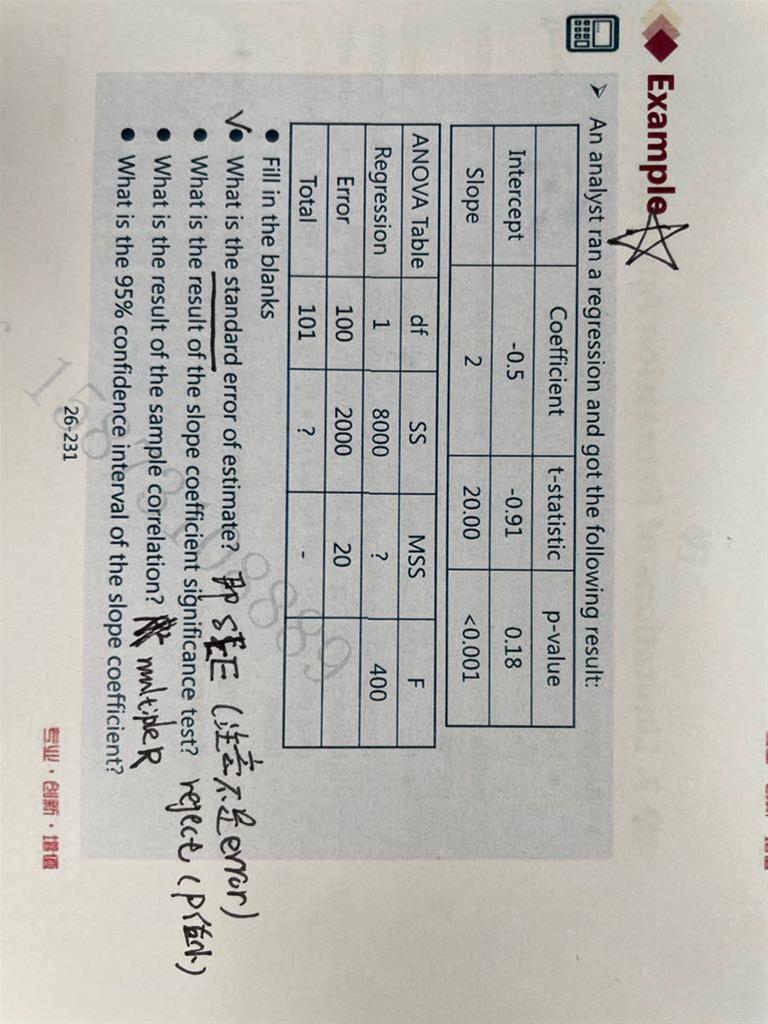 Example
An analyst ran a regression and got the following result:
Coefficient t-statistic p-value
Intercept -0.5 -0.91 0.18
Slope 2 20.00 <0.001
ANOVA Table df SS MSS F
Regression 1 8000 ? 400
Error 100 2000 20
Total 101 ? -
• Fill in the blanks
• What is the standard error of estimate? 即SEE (注意不是error)
• What is the result of the slope coefficient significance test? reject (P值小)
• What is the result of the sample correlation? multiple R
• What is the 95% confidence interval of the slope coefficient?
26-231
专业·创新·增值